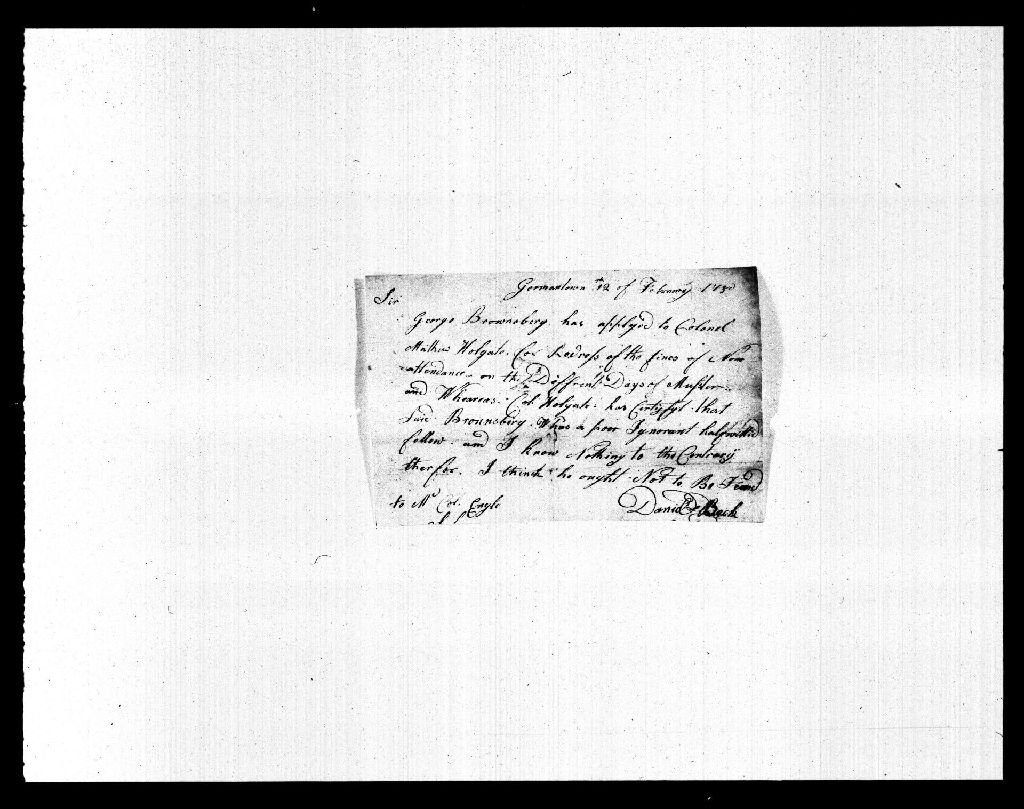 Germantown 12 of February
Sir
George Brownsberg has applyed to Colonel
Mathew Holgate. for Redress of the fines of Non
attendance on the Diffrent Days of Muster.
and Wheareas. Col. Holgate. has Certifyt that
Said Brounsberg. Whas a poor Ignorant halfwitted
fellow. and I know Nothing to the Contrary
therfor. I think he ought Not to Be Fined
to Mr Col. Engle
David Beck